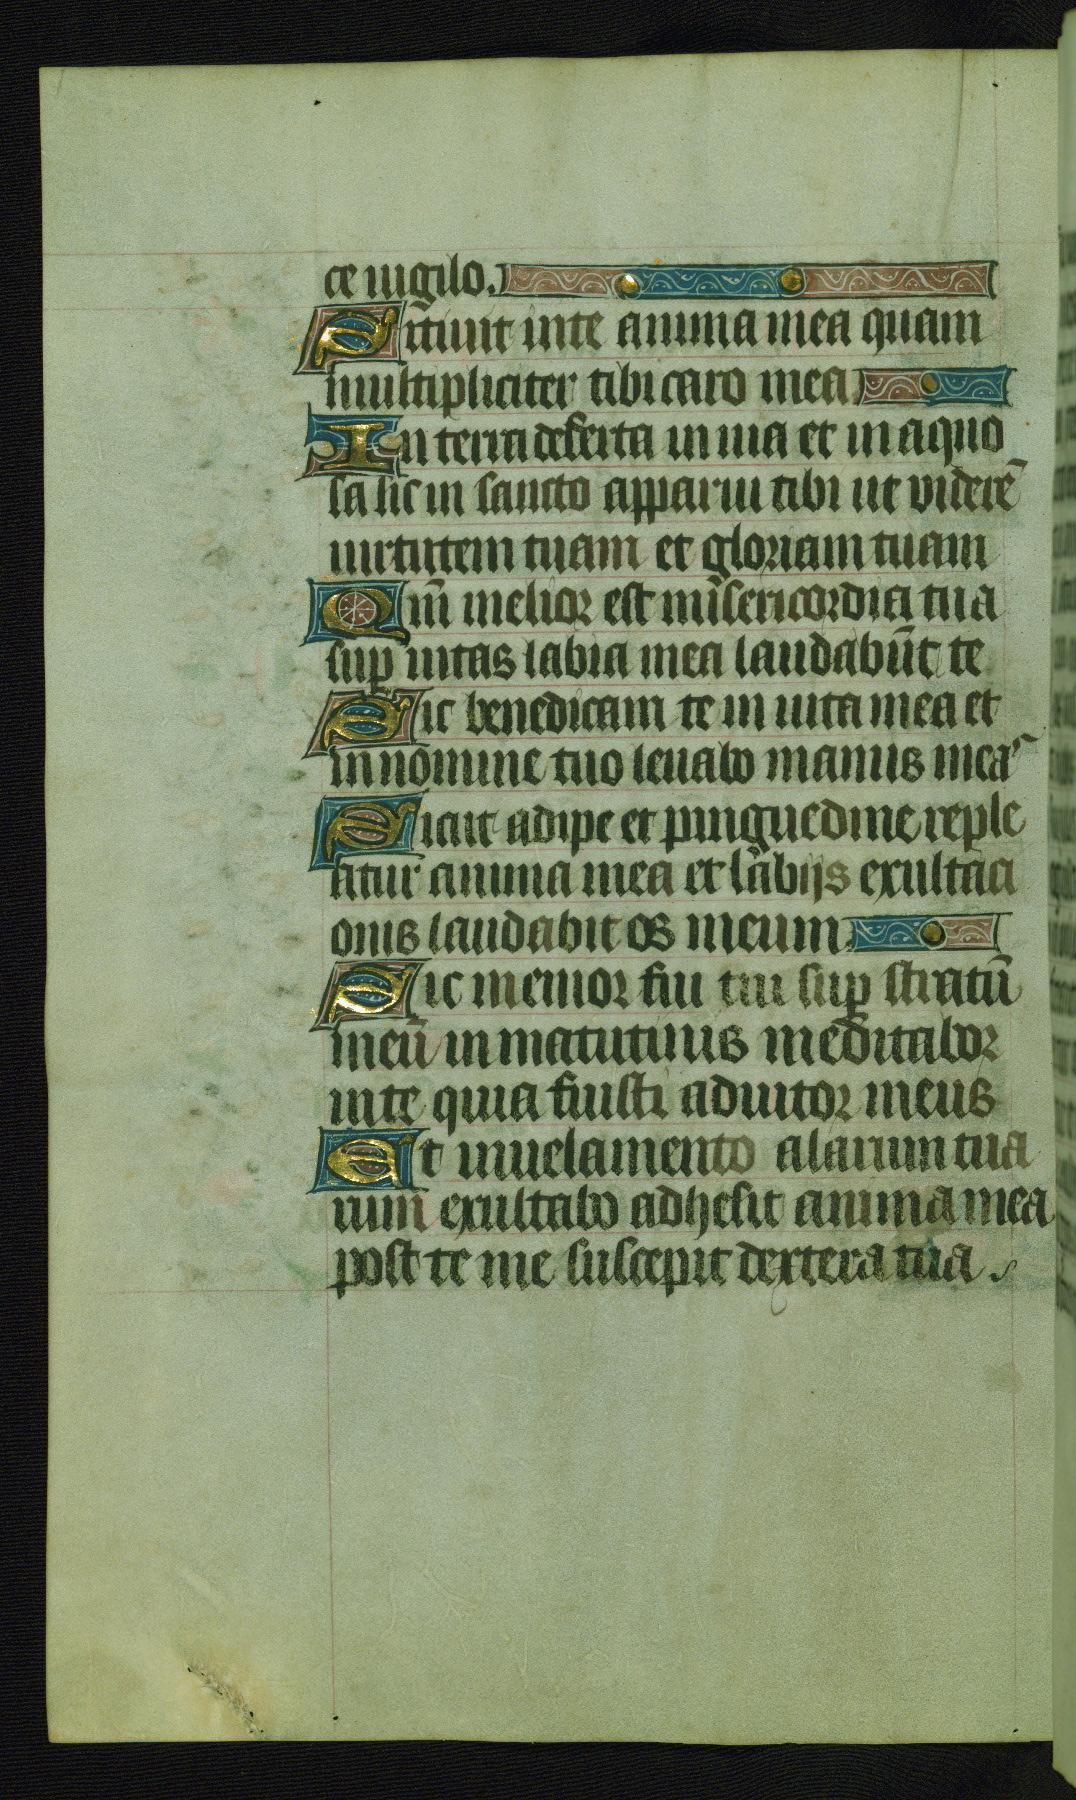 ce uigilo.
Sitiuit in te anima mea quam
multipliciter tibi caro mea
In terra deserta in uia et in aquo
sa sic in sancto apparui tibi ut viderē
uirtutem tuam et gloriam tuam
Qm̄ melior est misericordia tua
sup uitas labia mea laudabūt te
Sic benedicam te in uita mea et
in nomine tuo leuabo manus meas
Sicut adipe et pinguedine reple
atur anima mea et labijs exultaci
onis laudabit os meum
Sic memor fui tui sup stratū
meū in matutinis meditabor
in te quia fuisti adiutor meus
Et in uelamento alarum tua
rum exultabo adhesit anima mea
post te me suscepit dextera tua.